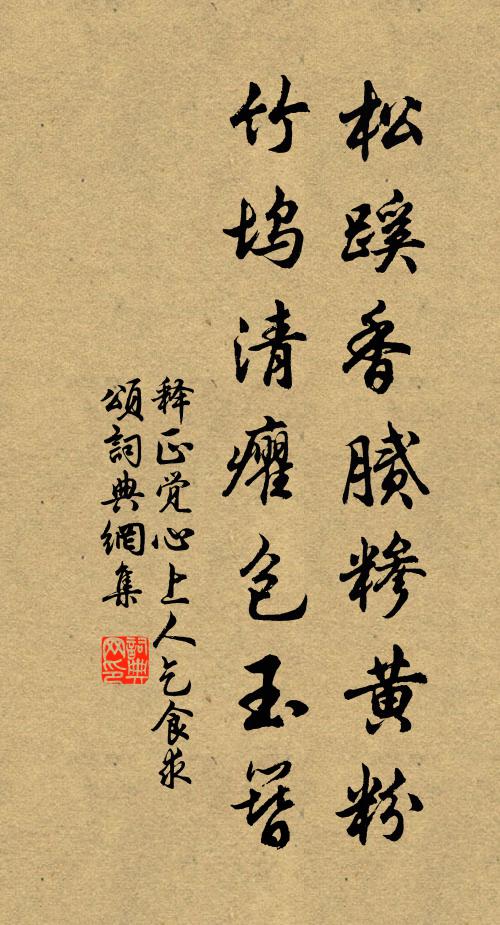 松蹊香腻糁黄粉
竹坞清癯包玉簪
释正觉心上人乞食求
頌詞典網集
詞典网印